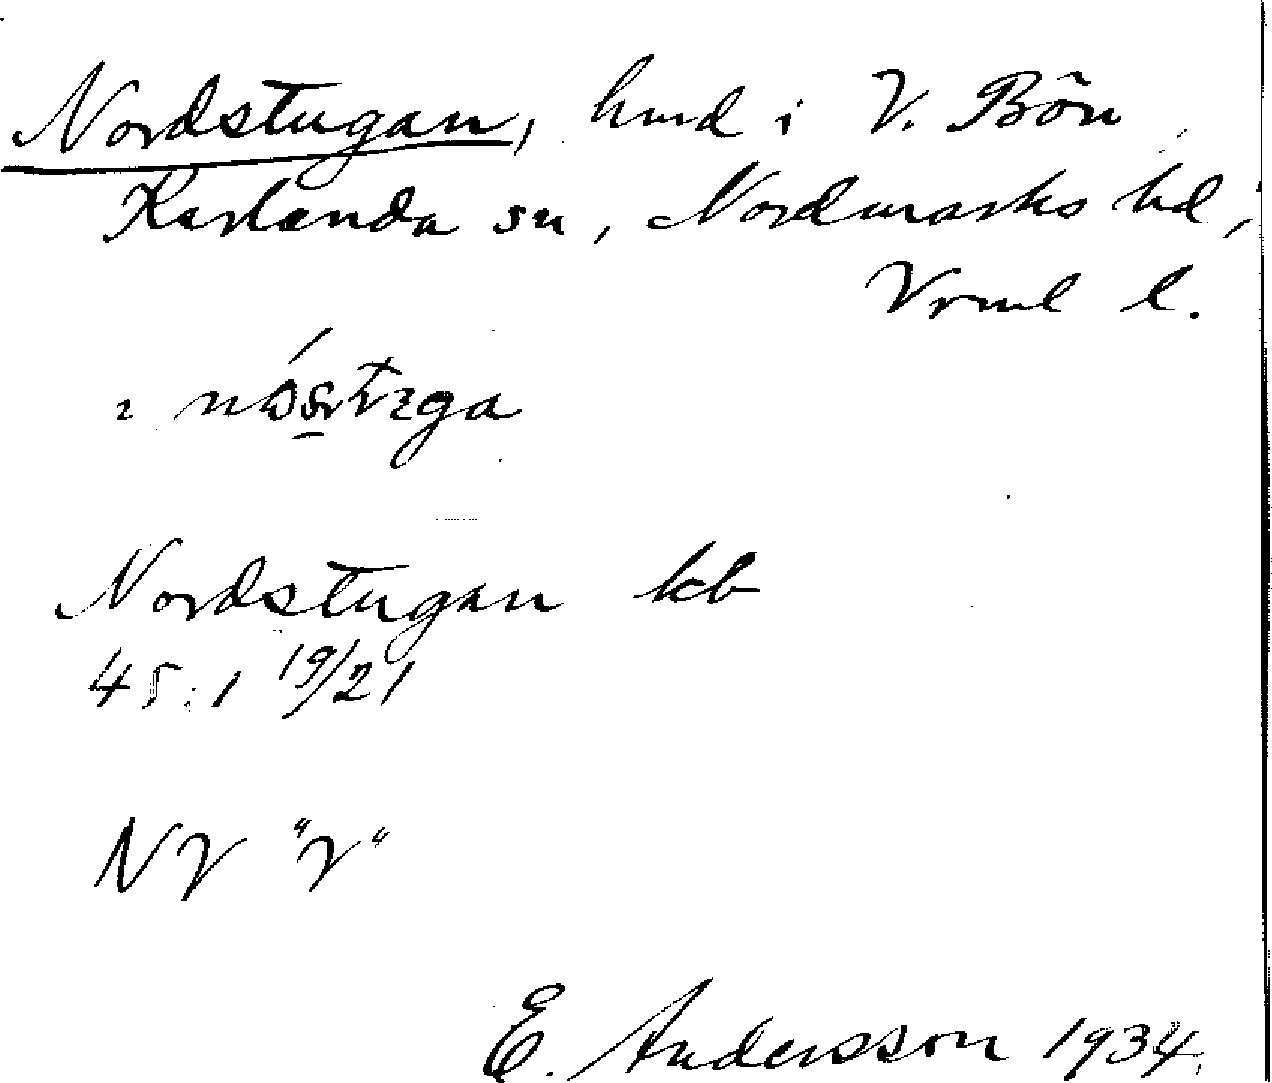 Nordstugan, hmd i V. Bön
Karlanda sn, Nordmarks hd,
Vrml l.
Nordstugan kb
45:1 19/21
NV "V"
E. Andersson 1934.